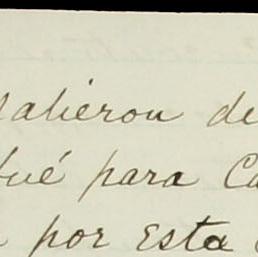 salieron de
fué para Ca
por esta